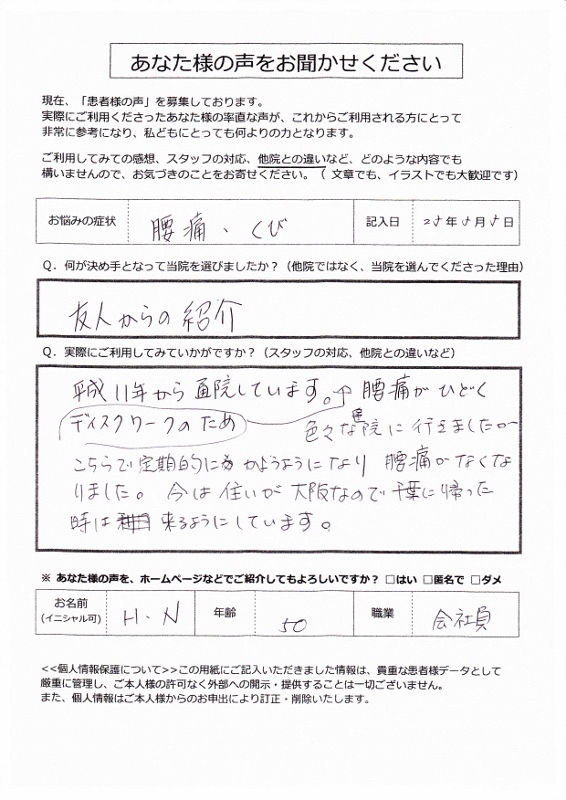 あなた様の声をお聞かせください
現在、「患者様の声」を募集しております。
実際にご利用くださったあなた様の率直な声が、これからご利用される方にとって
非常に参考になり、私どもにとっても何よりの力となります。
ご利用してみての感想、スタッフの対応、他院との違いなど、どのような内容でも
構いませんので、お気づきのことをお寄せください。（ 文章でも、イラストでも大歓迎です）
お悩みの症状 腰痛、くび 記入日 25年5月5日
Q．何が決め手となって当院を選びましたか？（他院ではなく、当院を選んでくださった理由）
友人からの紹介
Q．実際にご利用してみていかがですか？（スタッフの対応、他院との違いなど）
平成11年から通院しています。 腰痛がひどく
ディスクワークのため 色々な医院に行きましたが
こちらで定期的に かようようになり 腰痛がなくな
りました。今は住いが大阪なので千葉に帰った
時は 来るようにしています。
※ あなた様の声を、ホームページなどでご紹介してもよろしいですか？ □はい □匿名で □ダメ
お名前 H．N 年齢 50 職業 会社員
(イニシャル可)
<<個人情報保護について>>この用紙にご記入いただきました情報は、貴重な患者様データとして
厳重に管理し、ご本人様の許可なく外部への開示・提供することは一切ございません。
また、個人情報はご本人様からのお申出により訂正・削除いたします。